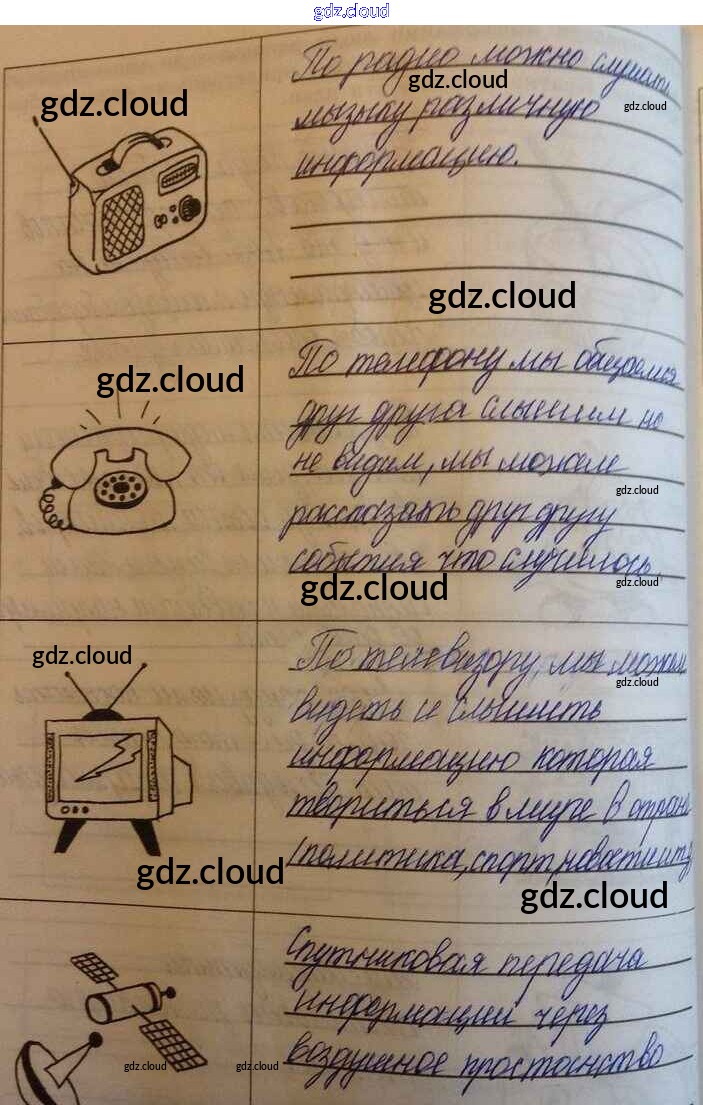 gdz.cloud
По радио можно слушать
gdz.cloud
gdz.cloud
gdz.cloud
мызыку различную
информацию.
gdz.cloud
По телефону мы общаемся
gdz.cloud
друг друга слышим но
не видим, мы можем
gdz.cloud
рассказать друг другу
события что случилось
gdz.cloud
gdz.cloud
По телевизору, мы можем
gdz.cloud
gdz.cloud
видеть и слышить
информацию которая
твориться в мире в
(политика, спорт,
gdz.cloud
gdz.cloud
Спутниковая передача
информации через
воздушное
gdz.cloud
gdz.cloud